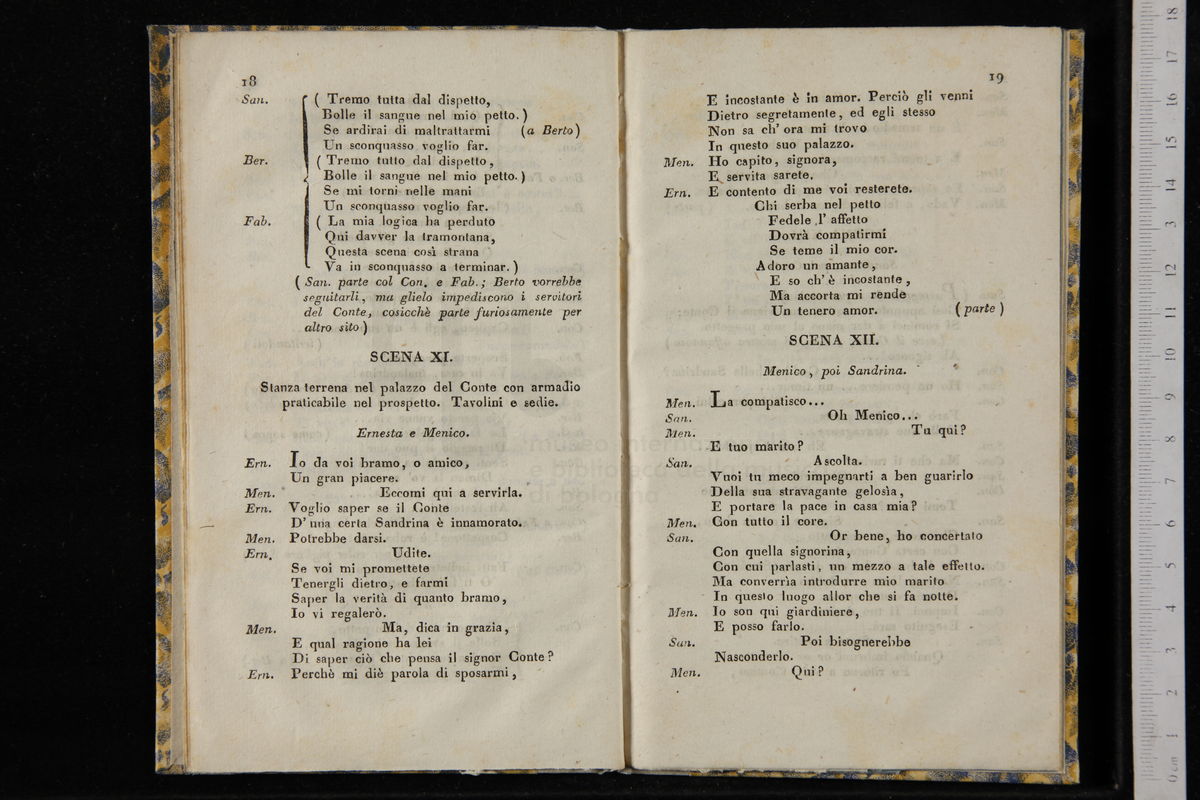 18
San. ( Tremo tutta dal dispetto,
Bolle il sangue nel mio petto. )
Se ardirai di maltrattarmi (a Berto)
Un sconquasso voglio far.
Ber. ( Tremo tutto dal dispetto,
Bolle il sangue nel mio petto. )
Se mi torni nelle mani
Un sconquasso voglio far.
Fab. ( La mia logica ha perduto
Qui davver la tramontana,
Questa scena così strana
Va in sconquasso a terminar. )
( San. parte col Con. e Fab.; Berto vorrebbe
seguitarli, ma glielo impediscono i servitori
del Conte, cosicchè parte furiosamente per
altro sito )
SCENA XI.
Stanza terrena nel palazzo del Conte con armadio
praticabile nel prospetto. Tavolini e sedie.
Ernesta e Menico.
Ern. Io da voi bramo, o amico,
Un gran piacere.
Men. Eccomi qui a servirla.
Ern. Voglio saper se il Conte
D' una certa Sandrina è innamorato.
Men. Potrebbe darsi.
Ern. Udite.
Se voi mi promettete
Tenergli dietro, e farmi
Saper la verità di quanto bramo,
Io vi regalerò.
Men. Ma, dica in grazia,
E qual ragione ha lei
Di saper ciò che pensa il signor Conte?
Ern. Perchè mi diè parola di sposarmi,
19
E incostante è in amor. Perciò gli venni
Dietro segretamente, ed egli stesso
Non sa ch' ora mi trovo
In questo suo palazzo.
Men. Ho capito, signora,
E servita sarete.
Ern. E contento di me voi resterete.
Chi serba nel petto
Fedele l' affetto
Dovrà compatirmi
Se teme il mio cor.
Adoro un amante,
E so ch' è incostante,
Ma accorta mi rende
Un tenero amor. (parte)
SCENA XII.
Menico, poi Sandrina.
Men. La compatisco...
San. Oh Menico...
Men. Tu qui?
E tuo marito?
San. Ascolta.
Vuoi tu meco impegnarti a ben guarirlo
Della sua stravagante gelosìa,
E portare la pace in casa mia?
Men. Con tutto il core.
San. Or bene, ho concertato
Con quella signorina,
Con cui parlasti, un mezzo a tale effetto.
Ma converrìa introdurre mio marito
In questo luogo allor che si fa notte.
Men. Io son qui giardiniere,
E posso farlo.
San. Poi bisognerebbe
Nasconderlo.
Men. Qui?
museo interna
e biblio
di bologna
0 cm 1 2 3 4 5 6 7 8 9 10 11 12 13 14 15 16 17 18